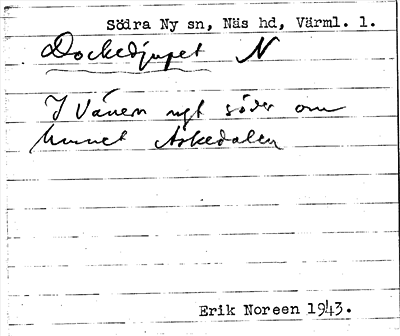 Södra Ny sn, Näs hd, Värml. l.
Dockedjupet N
I Vänern syd söder om
hunet Askedalen
Erik Noreen 1943.